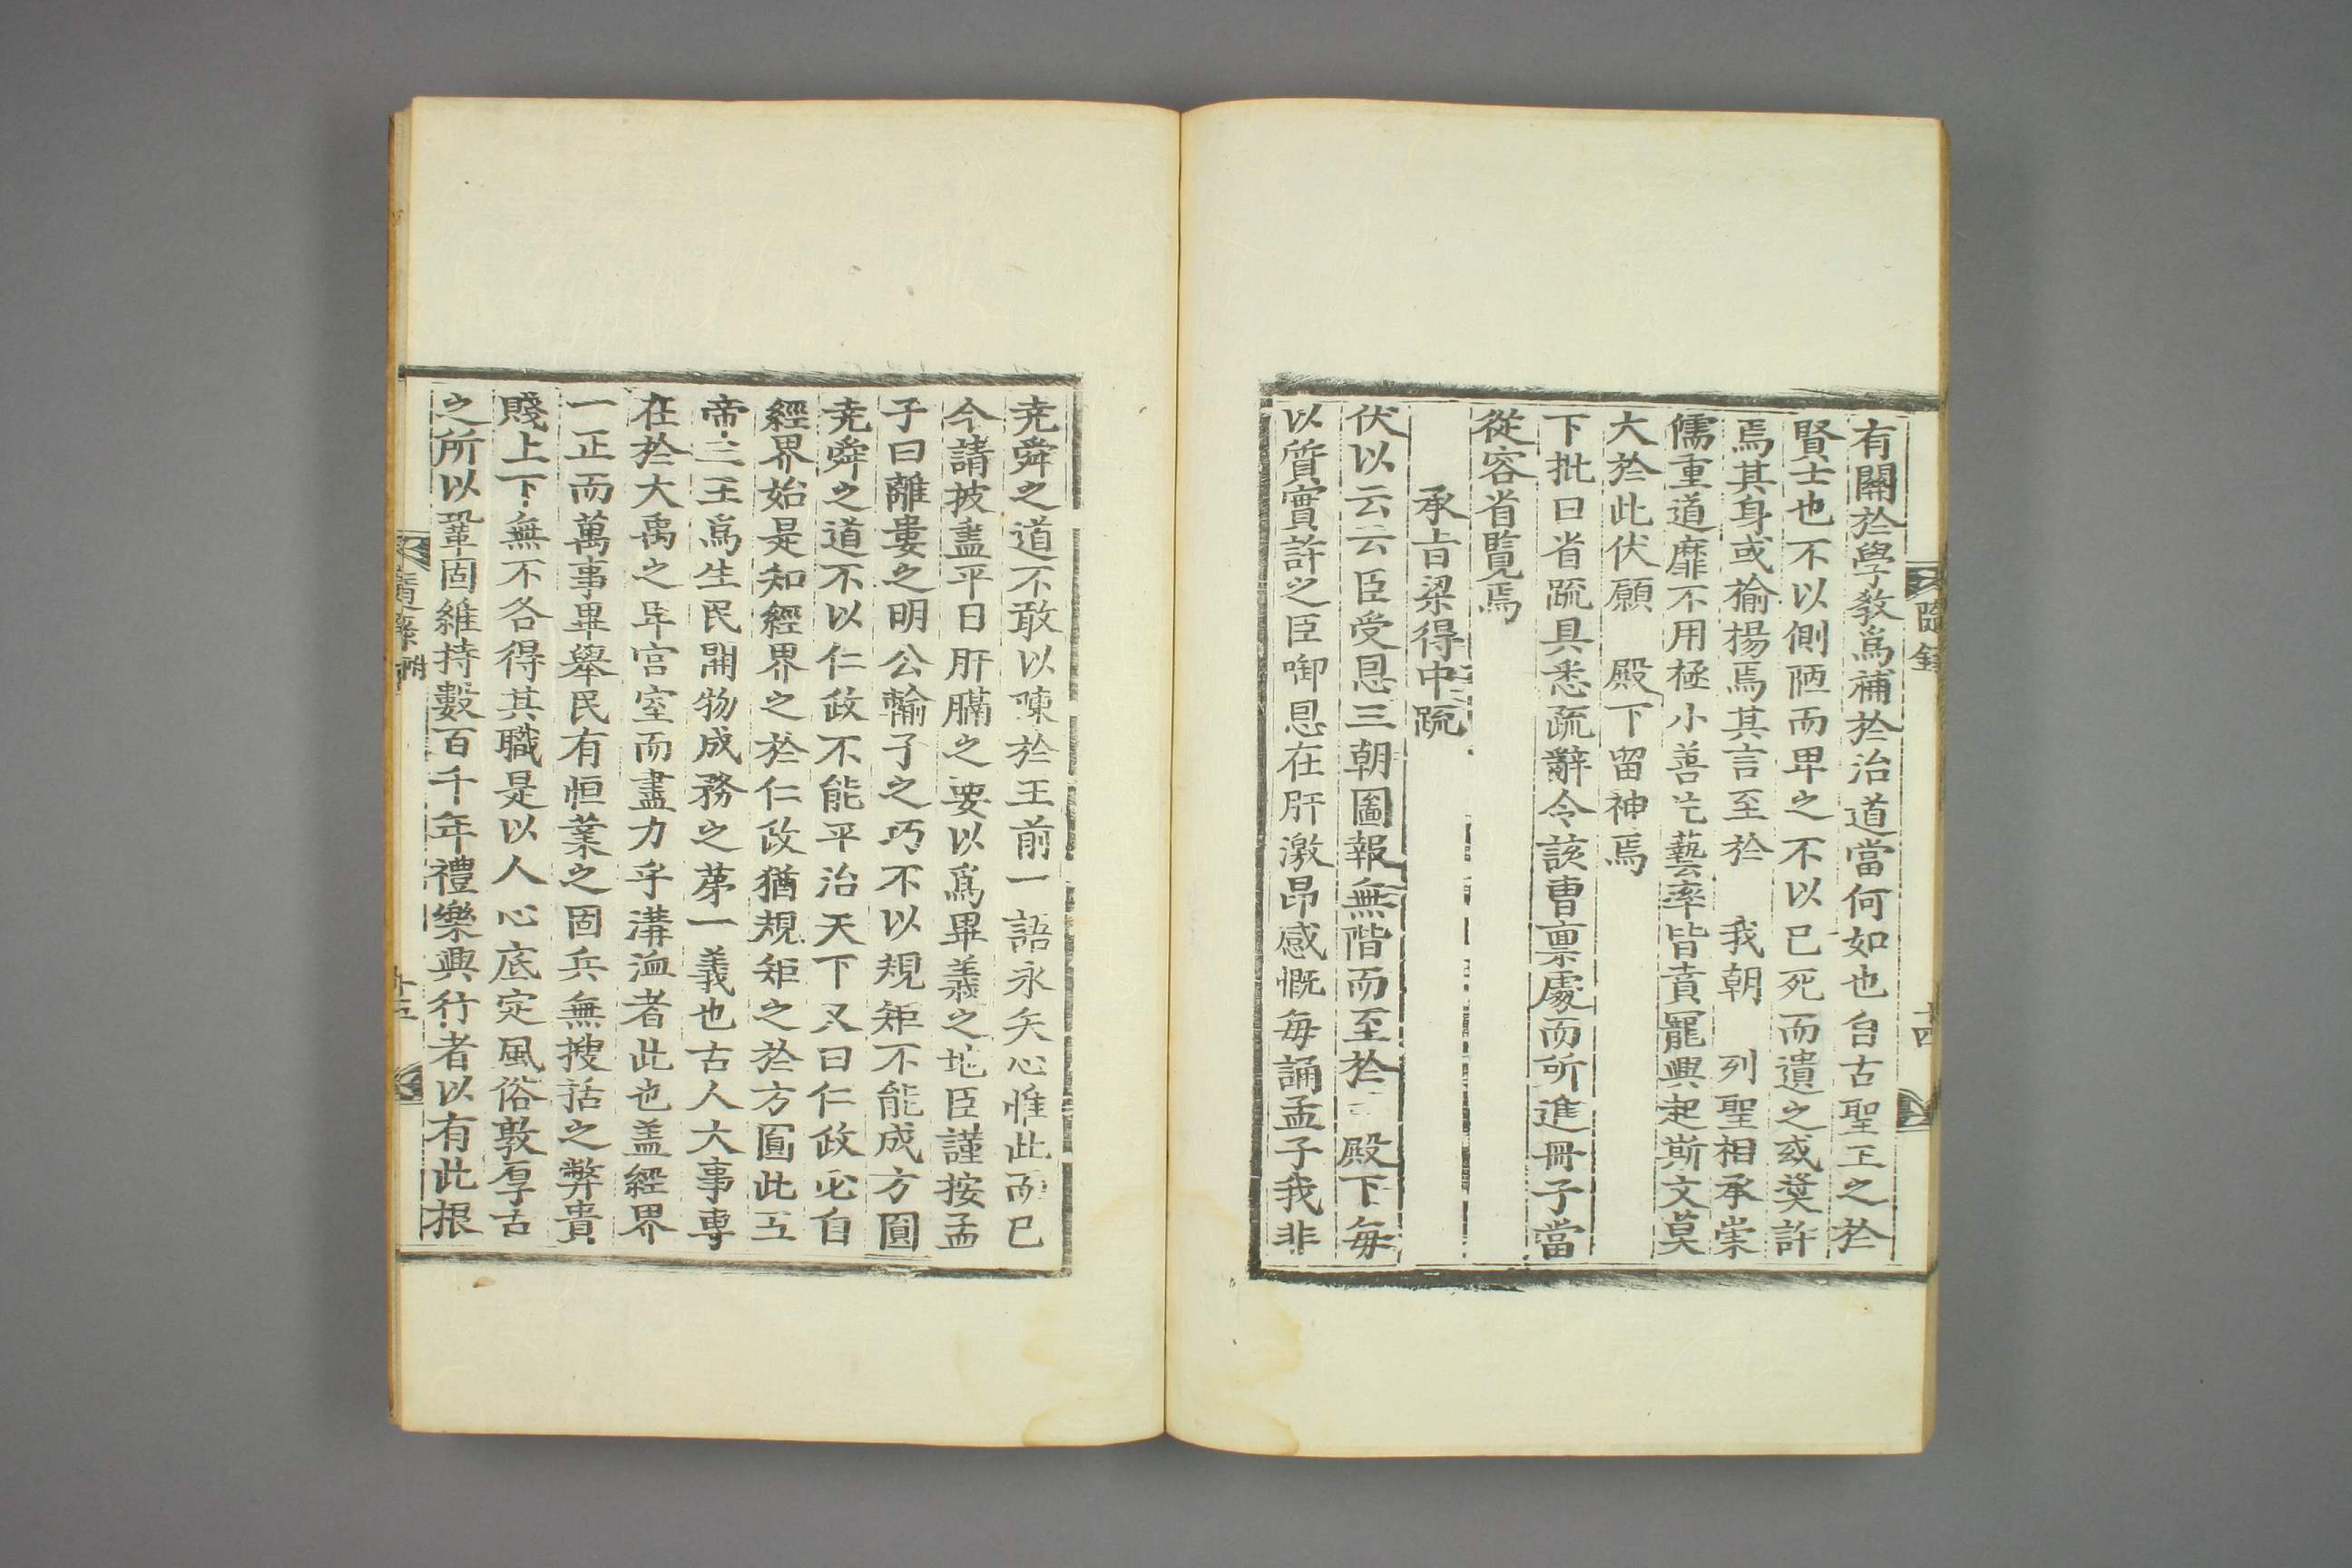 有關於學敎爲補於治道當何如也自古聖王之於
賢士也不以側陋而卑之不以已死而遺之或奬許
焉其身或揄揚焉其言至於　我朝　列聖相承崇
儒重道靡不用極小善片藝率皆賁寵興起斯文莫
大於此伏願　殿下留神焉
下批曰省疏具悉疏辭令該曹禀處而所進冊子當
從容省覽焉
承旨梁得中疏
伏以云云臣受恩三朝圖報無階而至於　殿下每
以質實許之臣啣恩在肝激昂感慨每誦孟子我非
堯舜之道不敢以陳於王前一語永矢心惟此而已
今請披盡平日肝膈之要以爲畢義之地臣謹按孟
子曰離婁之明公輸子之巧不以規矩不能成方圓
堯舜之道不以仁政不能平治天下又曰仁政必自
經界始是知經界之於仁政猶規矩之於方圓此五
帝三王爲生民開物成務之苐一義也古人大事專
在於大禹之卑宮室而盡力乎溝洫者此也盖經界
一正而萬事畢舉民有恒業之固兵無搜括之弊貴
賤上下無不各得其職是以人心底定風俗敦厚古
之所以鞏固維持數百千年禮樂興行者以有此根